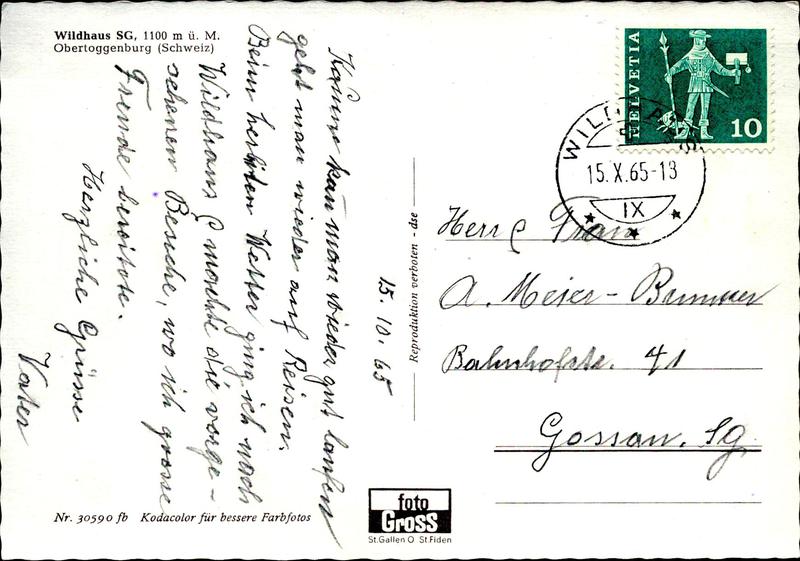 Wildhaus SG, 1100 m ü. M.
Obertoggenburg (Schweiz)
HELVETIA
10
WILDHAUS
15.X.65-13
IX
15.10.65
Kaum kan man wieder gut laufen
geht man wieder auf Reisen.
Beim herbsten Wetter ging ich nach
Wildhaus & machte die vorge-
sehenen Besuche, wo ich grosse
Freude bereitete.
Herzliche Grüsse
Vater
Reproduktion verboten - dse
Herr & Frau
A. Meier-Brunner
Bahnhofstr. 41
Gossau. Sg.
Nr. 30590 fb Kodacolor für bessere Farbfotos
foto
Gross
St.Gallen O St.Fiden